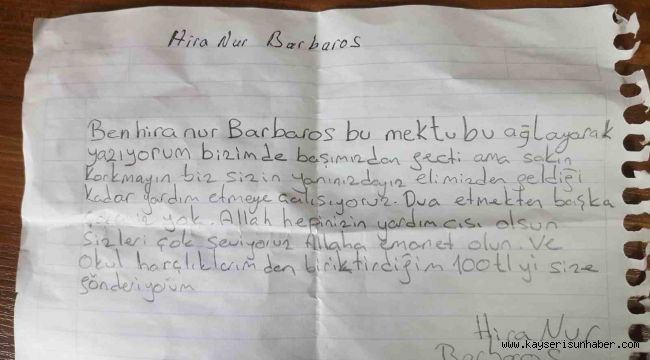 Hira Nur Barbaros
Ben hira nur Barbaros bu mektubu ağlayarak
yazıyorum bizimde başımızdan geçti ama sakın
korkmayın biz sizin yanınızdayız elimizden geldiği
kadar yardım etmeye çalışıyoruz. Dua etmekten başka
yok. Allah hepinizin yardımcısı olsun
sizleri çok seviyoruz Allaha emanet olun. Ve
okul harçlıklarımdan biriktirdiğim 100tl yi size
gönderiyorum
Hira Nur
Barbaros
www.kayserisunhaber.com